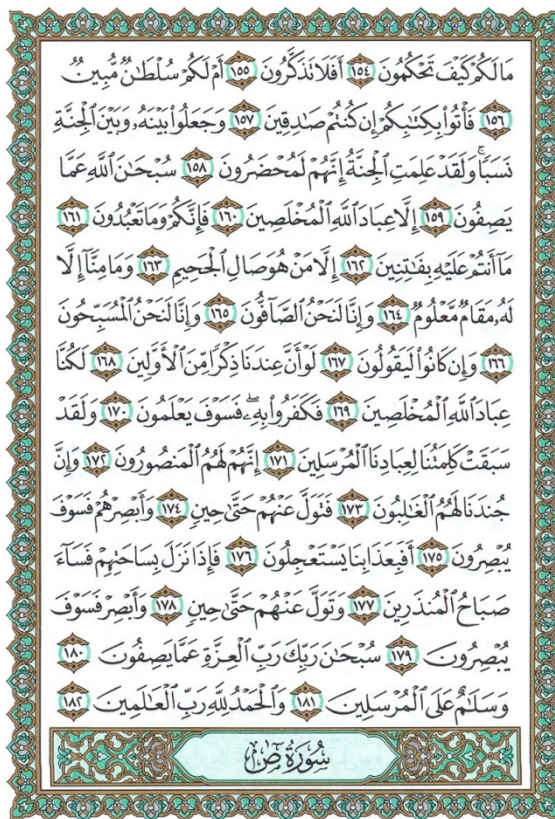 مَا لَكُمْ كَيْفَ تَحْكُمُونَ ١٥٤ أَفَلَا تَذَكَّرُونَ ١٥٥ أَمْ لَكُمْ سُلْطَٰنٌ مُّبِينٌ
١٥٦ فَأْتُوا۟ بِكِتَٰبِكُمْ إِن كُنتُمْ صَٰدِقِينَ ١٥٧ وَجَعَلُوا۟ بَيْنَهُۥ وَبَيْنَ ٱلْجِنَّةِ
نَسَبًا ۚ وَلَقَدْ عَلِمَتِ ٱلْجِنَّةُ إِنَّهُمْ لَمُحْضَرُونَ ١٥٨ سُبْحَٰنَ ٱللَّهِ عَمَّا
يَصِفُونَ ١٥٩ إِلَّا عِبَادَ ٱللَّهِ ٱلْمُخْلَصِينَ ١٦٠ فَإِنَّكُمْ وَمَا تَعْبُدُونَ ١٦١
مَآ أَنتُمْ عَلَيْهِ بِفَٰتِنِينَ ١٦٢ إِلَّا مَنْ هُوَ صَالِ ٱلْجَحِيمِ ١٦٣ وَمَا مِنَّآ إِلَّا
لَهُۥ مَقَامٌ مَّعْلُومٌ ١٦٤ وَإِنَّا لَنَحْنُ ٱلصَّآفُّونَ ١٦٥ وَإِنَّا لَنَحْنُ ٱلْمُسَبِّحُونَ
١٦٦ وَإِن كَانُوا۟ لَيَقُولُونَ ١٦٧ لَوْ أَنَّ عِندَنَا ذِكْرًا مِّنَ ٱلْأَوَّلِينَ ١٦٨ لَكُنَّا
عِبَادَ ٱللَّهِ ٱلْمُخْلَصِينَ ١٦٩ فَكَفَرُوا۟ بِهِۦ ۖ فَسَوْفَ يَعْلَمُونَ ١٧٠ وَلَقَدْ
سَبَقَتْ كَلِمَتُنَا لِعِبَادِنَا ٱلْمُرْسَلِينَ ١٧١ إِنَّهُمْ لَهُمُ ٱلْمَنصُورُونَ ١٧٢ وَإِنَّ
جُندَنَا لَهُمُ ٱلْغَٰلِبُونَ ١٧٣ فَتَوَلَّ عَنْهُمْ حَتَّىٰ حِينٍ ١٧٤ وَأَبْصِرْهُمْ فَسَوْفَ
يُبْصِرُونَ ١٧٥ أَفَبِعَذَابِنَا يَسْتَعْجِلُونَ ١٧٦ فَإِذَا نَزَلَ بِسَاحَتِهِمْ فَسَآءَ
صَبَاحُ ٱلْمُنذَرِينَ ١٧٧ وَتَوَلَّ عَنْهُمْ حَتَّىٰ حِينٍ ١٧٨ وَأَبْصِرْ فَسَوْفَ
يُبْصِرُونَ ١٧٩ سُبْحَٰنَ رَبِّكَ رَبِّ ٱلْعِزَّةِ عَمَّا يَصِفُونَ ١٨٠
وَسَلَٰمٌ عَلَى ٱلْمُرْسَلِينَ ١٨١ وَٱلْحَمْدُ لِلَّهِ رَبِّ ٱلْعَٰلَمِينَ ١٨٢
سُورَةُ صٓ